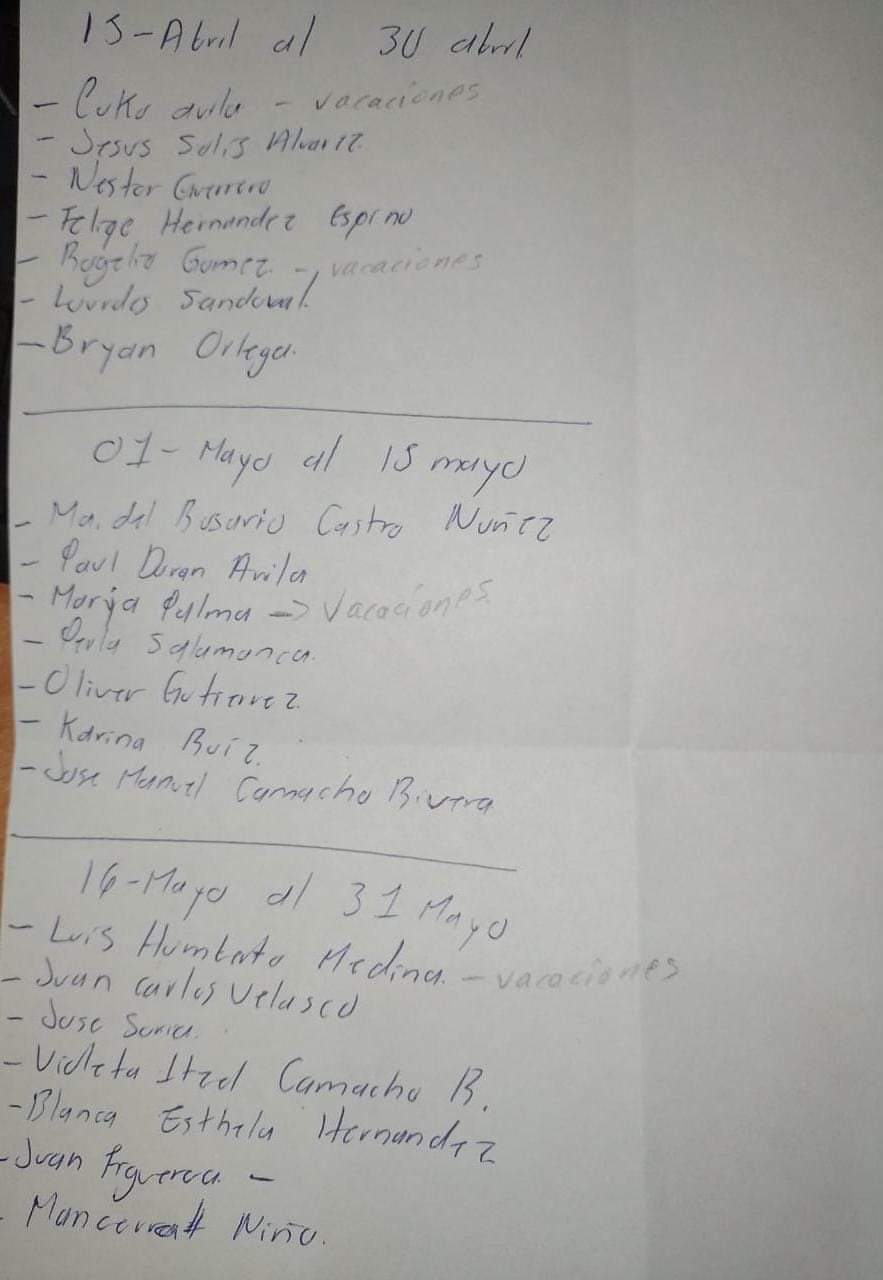 15-Abril al 30 abril
- Cuko avila - vacaciones
- Jesus Solis Alvarez.
- Nestor Guerrero
- Felipe Hernandez Espino
- Rogelio Gomez. - vacaciones
- Lourdes Sandoval.
- Bryan Ortega.
01- Mayo al 15 mayo
- Ma. del Rosario Castro Nuñez
- Paul Duran Avila
- Palma -> Vacaciones
- Perla Salamanca.
- Oliver Gutierrez.
- Karina Ruiz.
- Jose Manuel Camacho Rivera
16-Mayo al 31 Mayo
- Luis Humberto Medina. - vacaciones
- Juan Carlos Velasco
- Jose Soria.
- Violeta Itzel Camacho R.
- Blanca Esthela Hernandez
- Juan Figueroa. -
- Niño.